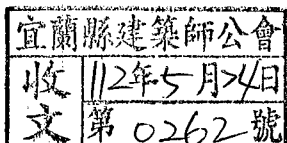 宜蘭縣建築師公會
收文
112年5月24日
第0262號